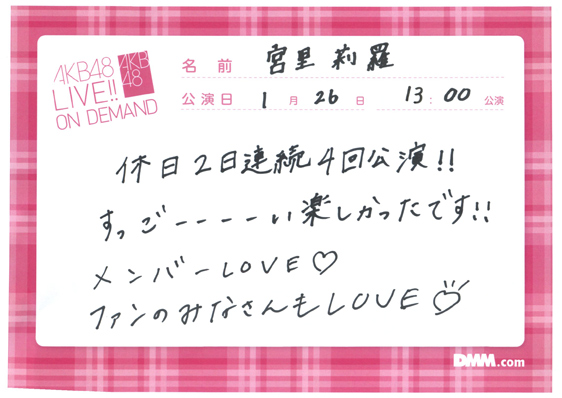 AKB48
LIVE!!
ON DEMAND
AKB
48
名前 宮里莉羅
公演日 1月26日 13:00公演
休日2日連続4回公演!!
すっごーーーーい楽しかったです!!
メンバーLOVE♡
ファンのみなさんもLOVE♡
DMM.com